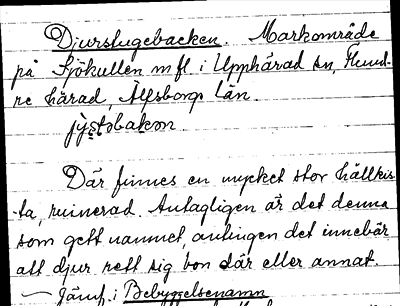 Djurstugebacken. Markområde
på Sjökullen m fl i Upphärad sn, Flund-
re härad, Älfsborgs län.
jÿstobakɐn
Där finnes en mycket stor hällkis-
ta, ruinerad. Antagligen är det denna
som gett namnet, antingen det innebär
att djur rett sig bon där eller annat.
— Jämf. i Bebyggelsenamn